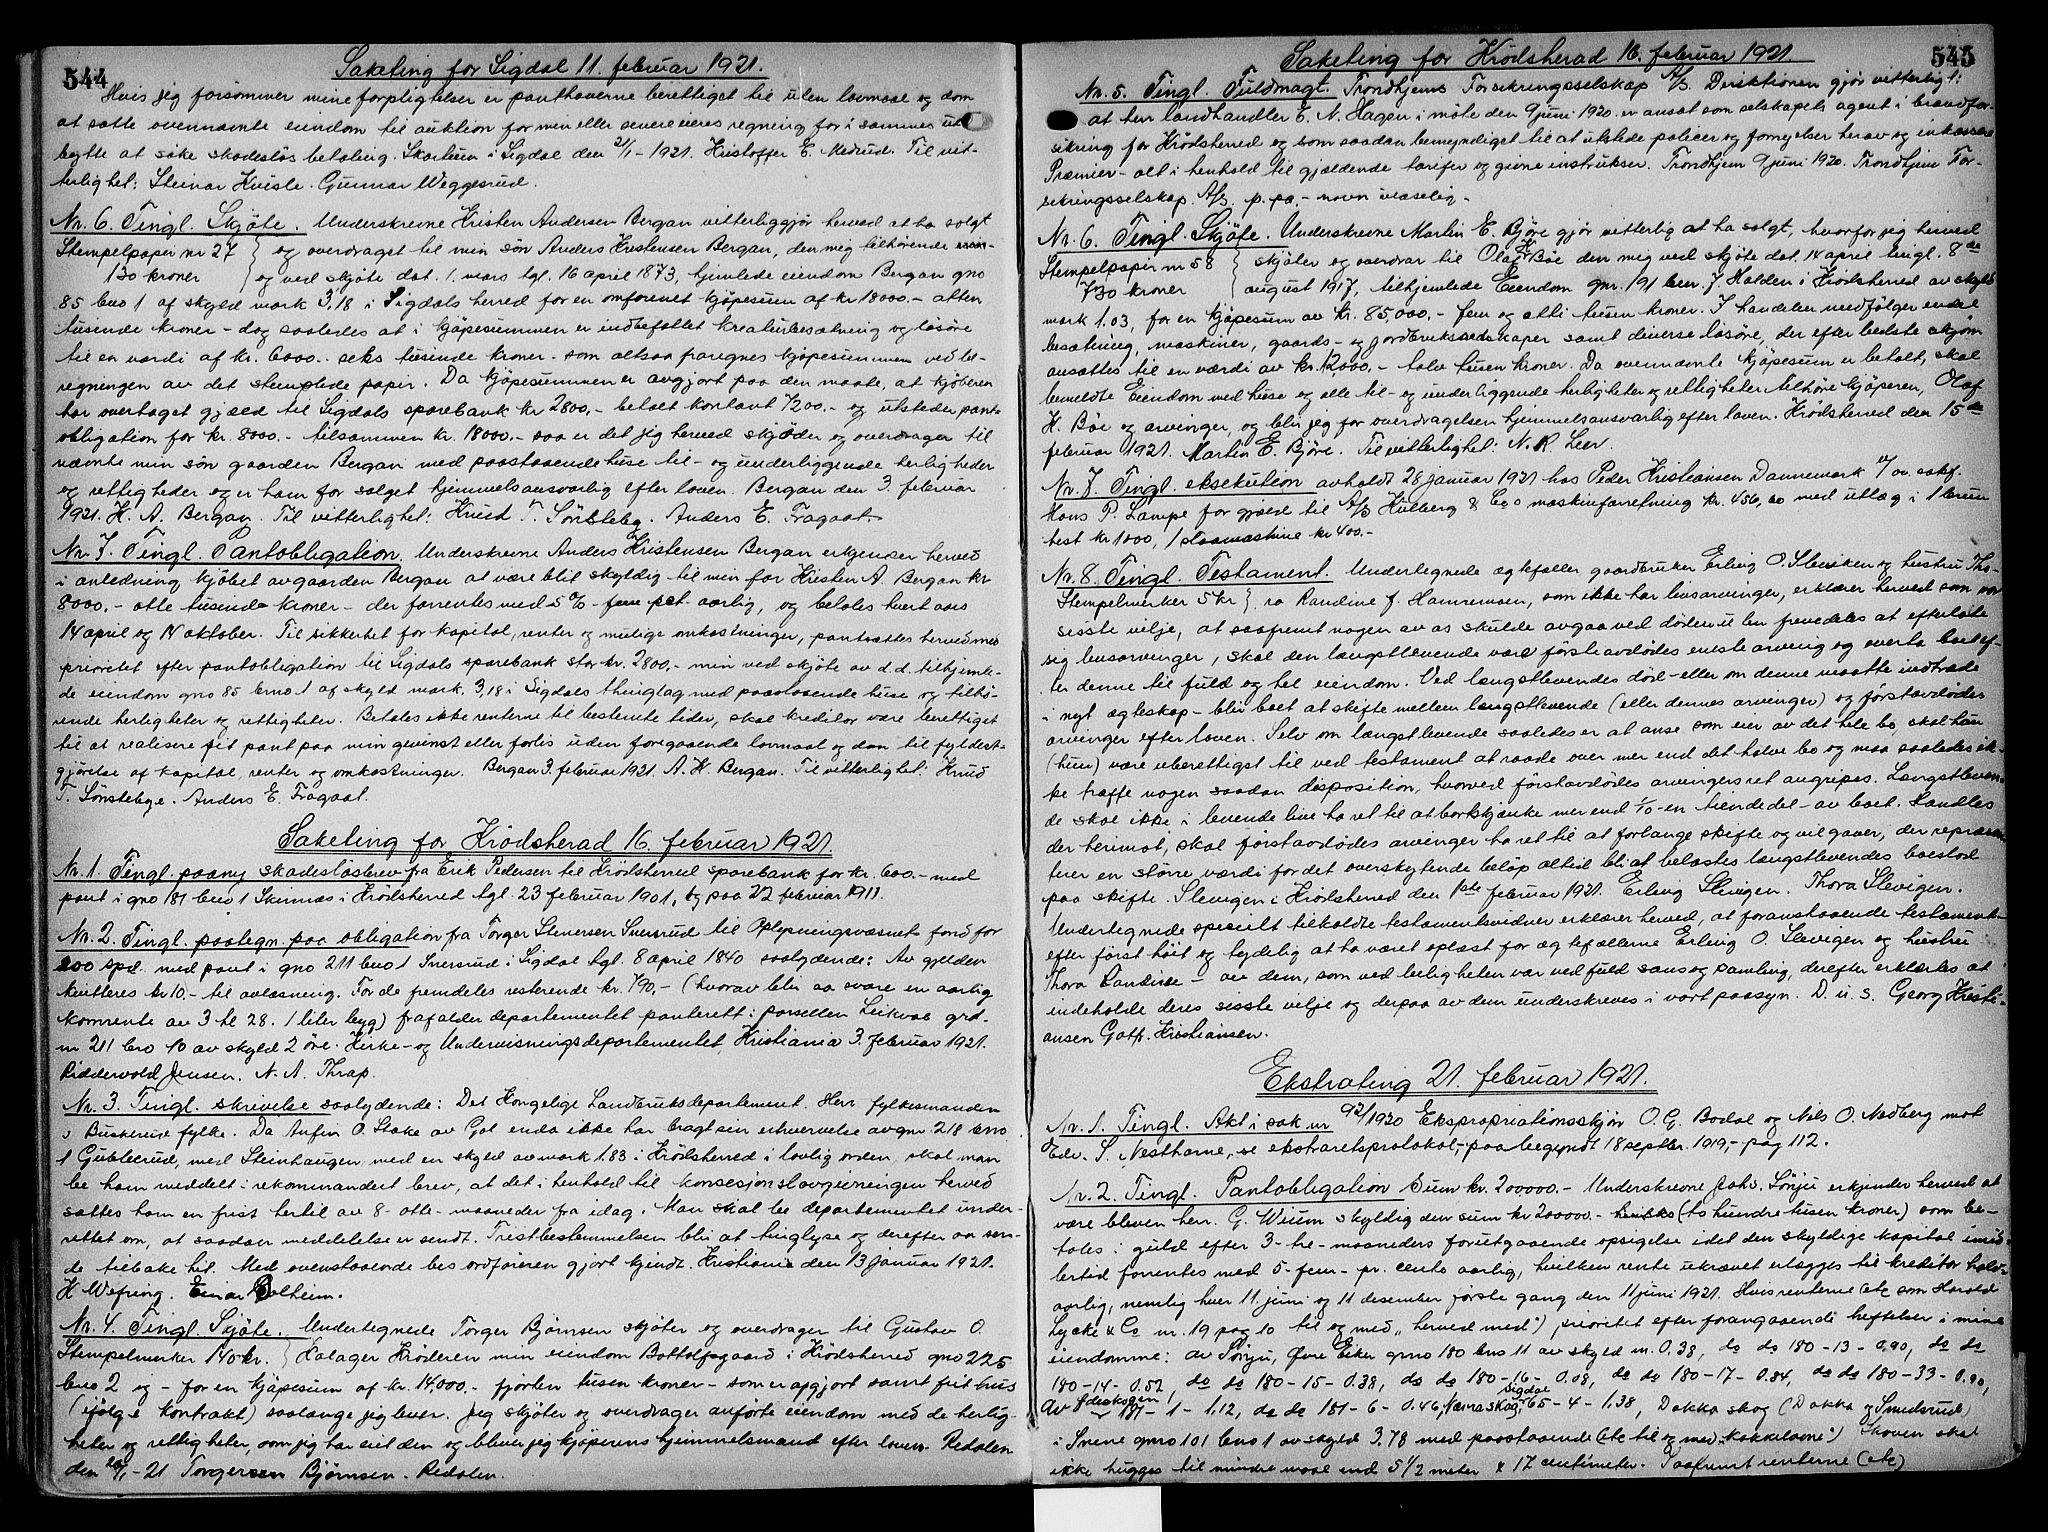 544
Saketing for Sigdal 11. februar 1921.
Hvis jeg forsømmer mine forpligtelser er panthaverne berettiget til uten lovmaal og dom
at sætte ovennævnte eiendom til auktion for min eller senere eieres regning for i sammes ud
bytte at søke skadesløs betaling. Skartum i Sigdal den 21/1-1921. Kristoffer E. Medrud. Til vit-
terlighet: Steinar Kvisle. Gunnar Weggesrud.
Nr. 6. Tingl. Skjøte. Underskrevne Kristen Andersen Bergan vitterliggjør herved at ha solgt
Stempelpapir nr 27 } og overdraget til min søn Anders Kristensen Bergan, den mig tilhørende
130 kroner } og ved skjøte dat. 1. mars tgl. 16 april 1873, hjemlede eiendom Bergan gno
85 bno 1 af skyld mark 3,18 i Sigdals herred for en omforenet kjøpesum af kr 18000.- atten
tusinde kroner - dog saaledes at i kjøpesummen er indbefattet kreaturbesætning og løsøre
til en værdi af kr. 6000.- seks tusinde kroner - som altsaa fraregnes kjøpesummen ved be-
regningen av det stemplede papir. Da kjøpesummen er avgjort paa den maate, at kjøberen
har overtaget gjæld til Sigdals sparebank kr 2800,- betalt kontant 7200.- og utsteder pant-
obligation for kr. 8000.- tilsammen kr. 18000.- saa er det jeg herved skjøder og overdrager til
nævnte min søn gaarden Bergan med paastaaende huse til- og underliggende herligheder
og rettigheder og er ham for solget hjemmelsansvarlig efter loven. Bergan den 3. februar
1921. K. A. Bergan. Til vitterlighet: Knud T. Sønsteby. Anders E. Fragaat.
Nr. 7. Tingl. Pantobligation. Underskrevne Anders Kristensen Bergan erkjender herved
i anledning kjøbet av gaarden Bergan at være blit skyldig til min far Kristen A. Bergan kr
8000.- otte tusinde kroner - der forrentes med 5 % - fem pct. aarlig, og betales hvert aars
14 april og 14 oktober. Til sikkerhet for kapital, renter og mulige omkostninger, pantsættes herved med
prioritet efter pantobligation til Sigdals sparebank stor kr. 2800.- min ved skjøte av d.d. tilhjemle-
de eiendom gno 85 bno 1 af skyld mark. 3,18 i Sigdals thinglag med paastaaende huse og tilhø-
rende herligheter og rettigheter. Betales ikke renterne til bestemte tider, skal kreditor være berettiget
til at realisere sit pant paa min gevinst eller forlis uden foregaaende lovmaal og dom til fyldest-
gjørelse af kapital, renter og omkostninger. Bergan 3. februar 1921. A. K. Bergan. Til vitterlighet: Knud
T. Sønstebye. Anders E. Fragaat.
Saketing for Krødsherad 16. februar 1921.
Nr. 1. Tingl. paany skadesløsbrev fra Erik Pedersen til Krødsherred sparebank for kr. 600.- med
pant i gno 181 bno 1 Skinnæs i Krødsherred tgl. 23 februar 1901, og paa 22 februar 1911.
Nr. 2. Tingl. paategn. paa obligation fra Torger Stenersen Snersrud til Oplysningsvæsnets fond for
200 spd. med pant i gno 211 bno 1 Snersrud i Sigdal tgl. 8 april 1840 saalydende: Av gjelden
kvitteres kr 10.- til avløsning. For de fremdeles resterende kr. 790,- (hvorav blir aa svare en aarlig
kornrente av 3 hl 28. 1 liter byg) frafalder departementet panterett i parsellen Leikvae grd.
nr 211 bno 10 av skyld 2 øre. Kirke- og Undervisningsdepartementet, Kristiania 3. februar 1921.
Ridderwold Jensen. N. A. Thrap.
Nr. 3. Tingl. skrivelse saalydende: Det Kongelige Landbruksdepartement. Herr fylkesmanden
i Buskerud fylke. Da Anfin O. Stake av Gol enda ikke har bragt sin erhvervelse av gnr. 218 bno
1 Gubberud, med Steinhaugen med en skyld av mark 1.83 i Krødsherred i lovlig orden, skal man
be ham meddelt i rekommandert brev, at det i henhold til konsesjonslovgivningen herved
sættes ham en frist hertil av 8- otte- maaneder fra idag. Man skal be departementet under-
rettet om, at saadan meddelelse er sendt. Fristbestemmelsen blir at tinglyse og derefter aa sen-
de tilbake hit. Med ovenstaaende bes ordføreren gjort kjendt. Kristiania den 13 januar 1921.
K Wefring. Einar Bolheim.
Nr. 4. Tingl. Skjøte. Undertegnede Torger Bjørnsen skjøter og overdrager til Gustav O.
Stempelmerker 140 kr. } Kalager Krøderen min eiendom Bottolfsgaard i Krødsherred gno 225
bno 2 og - for en kjøpesum af kr. 14,000.- fjorten tusen kroner - som er opgjort samt frit hus
(ifølge kontrakt) saalænge jeg lever. Jeg skjøter og overdrager anførte eiendom med de herlig-
heter og rettigheter, som jeg har eiet den og bliver jeg kjøperens hjemmelsmand efter loven. Redalen
den 20/1-21 Torgersen Bjørnsen. Redalen.
545
Saketing for Krødsherad 16. februar 1921
Nr. 5. Tingl. Fuldmagt. Trondhjems Forsikringsselskap A/S. Direktionen gjør vitterligt:
at herr landhandler E. N. Hagen i møte den 9 juni 1920 er ansat som selskapets agent i brandfor-
sikring for Krødsherred og som saadan bemyndiget til at utstede policer og fornyelser herav og inkassere
Præmier - alt i henhold til gjældende tarifer og givne instrukser. Trondhjem 9 juni 1920. Trondhjems For-
sikringsselskap A/S. p.pa.- navn ulæselig -
Nr. 6. Tingl. Skjøte. Underskrevne Martin E. Bjøre gjør vitterlig at ha solgt, hvorfor jeg herved
Stempelpapir nr 58 } skjøter og overdrar til Olaf H Bøe den mig ved skjøte dat. 14 april tingl. 8de
730 kroner } august 1917, tilhjemlede Eiendom gnr. 191 bnr. 7 Halden i Krødsherred av skyld
mark 1.03, for en kjøpesum av kr. 85,000.- fem og otti tusen kroner. I handelen medfølger endel
besætning, maskiner, gaards- og jordbruksredskaper samt diverse løsøre, der efter bedste skjøn
ansættes til en værdi av kr. 12,000.- tolv tusen kroner. Da ovennævnte kjøpesum er betalt, skal
bemeldte Eiendom med huse og alle til- og underliggende herligheter og rettigheter tilhøre kjøperen, Olaf
H. Bøe og arvinger, og blir jeg for overdragelsen hjemmelsansvarlig efter loven. Krødsherred den 15de
februar 1921. Martin E. Bjøre. Til vitterlighet: N. R. Leer.
Nr. 7. Tingl. eksekution avholdt 28 januar 1921 hos Peder Kristiansen Dannemark v/ ov. sakf.
Hans P. Lampe for gjæld til A/S Kulberg & Co maskinforretning kr. 456,60 med utlæg i 1 brun
hest kr 1000, 1 slaamaskine kr 400.-
Nr. 8. Tingl. Testament. Undertegnede egtefæller gaardbruker Erling O. Sleviken og hustru Tho-
Stempelmerker 5 kr } ra Randine f. Hamremoen, som ikke har livsarvinger, erklærer herved som vor
sisste vilje, at saafremt nogen av os skulde avgaa ved døden uten fremdeles at efterlate
sig livsarvinger, skal den længstlevende være førstavdødes eneste arving og overta boet ef-
ter denne til fuld og hel eiendom. Ved længstlevendes død - eller om denne maatte indtræde
i nyt egteskap - blir boet at skifte mellem længstlevende (eller dennes arvinger) og førstavdødes
arvinger efter loven. Selv om længstlevende saaledes er at anse som eier av det hele bo, skal han
(hun) være uberettiget til ved testament at raade over mer end det halve bo og maa saaledes ik-
ke træffe nogen saadan disposition, hvorved førstavdødes arvingers ret angripes. Længstleven-
de skal ikke i levende live ha ret til at bortskjænke mer end 1/10 - en tiendedel - av boet. Handles
der herimot, skal førstavdødes arvinger ha ret til at forlange skifte og vil gaver, der repræsen-
terer en større værdi for det overskytende beløp altid bli at belastes længstlevendes boeslod
paa skifte. Slevigen i Krødsherred den 1ste februar 1921. Erling Slevigen. Thora Slevigen.
Undertegnede specielt tilkaldte testamentsvidner erklærer herved, at foranstaaende testament-
efter først høit og tydelig at ha været oplæst for egtefællerne Erling O. Slevigen og hustru
Thora Randine - av dem, som ved leiligheten var ved fuld sans og samling, derefter erklærtes at
indeholde deres sisste vilje og derpaa av dem underskreves i vort paasyn. D. u. s. Georg Kristi-
ansen Gotf. Kristiansen.
Ekstrating 21. februar 1921.
Nr. 1. Tingl. Akt i sak nr 92/1920 Ekspropriationsskjøn O. G. Bodal og Nils O. Medberg mot
Edv. S. Nestharne, se ekstraretsprotokol, paabegyndt 18 septbr. 1919,- pag 112.
Nr. 2. Tingl. Pantobligation Sum kr. 200000.- Underskrevne Johs. Sønju erkjender herved at
være bleven herr. G. Wium skyldig den sum kr 200000.- (to hundre tusen kroner) som be-
tales i guld efter 3- tre- maaneders forutgaaende opsigelse idet den skyldige kapital imid-
lertid forrentes med 5- fem- pr. cento aarlig, hvilken rente ukrævet erlægges til kreditor halv-
aarlig, nemlig hver 11. juni og 11 desember første gang den 11 juni 1921. Hvis renterne (etc som Harald
Lycke & Co nr. 19 pag 10 til og med „herved med") prioritet efter forangaaende heftelser i mine
eiendomme: av Sønju, Øvre Eiker gno 180 bno 11 av skyld m. 0.38, do do 180-13-0.90, do do
180-14-0.52, do do 180-15-0.38, do do 180-16-0.08, do do 180-17-0.84, do do 180-33-0.90,
Av Ødeskogen 181-1-1.12, do do 181-6-0.46, Næraskog, Sigdal 65-4-1.38, Dokka skog (Dokka og Smedsrud)
i Snene gno 101 bno 1 av skyld 3.78 med paastaaende (etc til og med „kakkelovne") Skoven skal
ikke hugges til mindre maal end 5 1/2 meter x 17 centimeter. Saafremt renterne (etc)